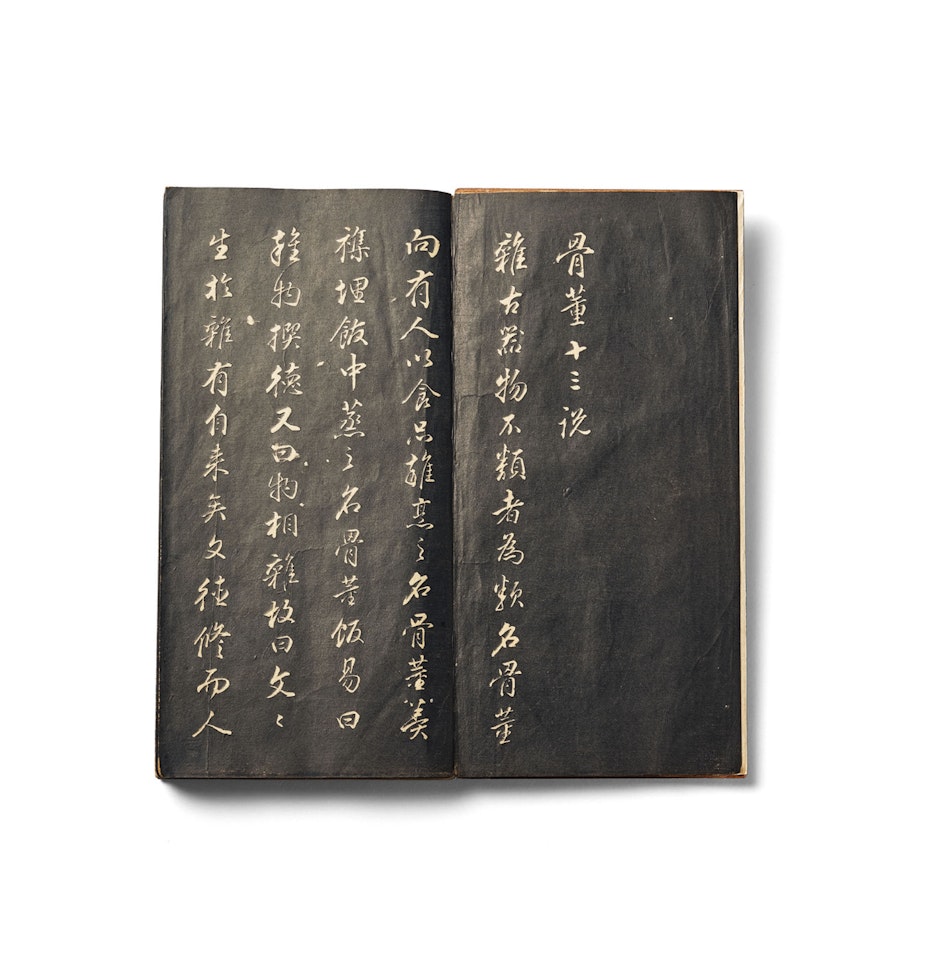 骨董十三说
雜古器物不類者為類名骨董
向有人以食品雜烹之名骨董羹
襍埋飯中蒸之名骨董飯易曰
雜物撰德又曰物相雜故曰文〻
生於雜有自来矣文德脩而人